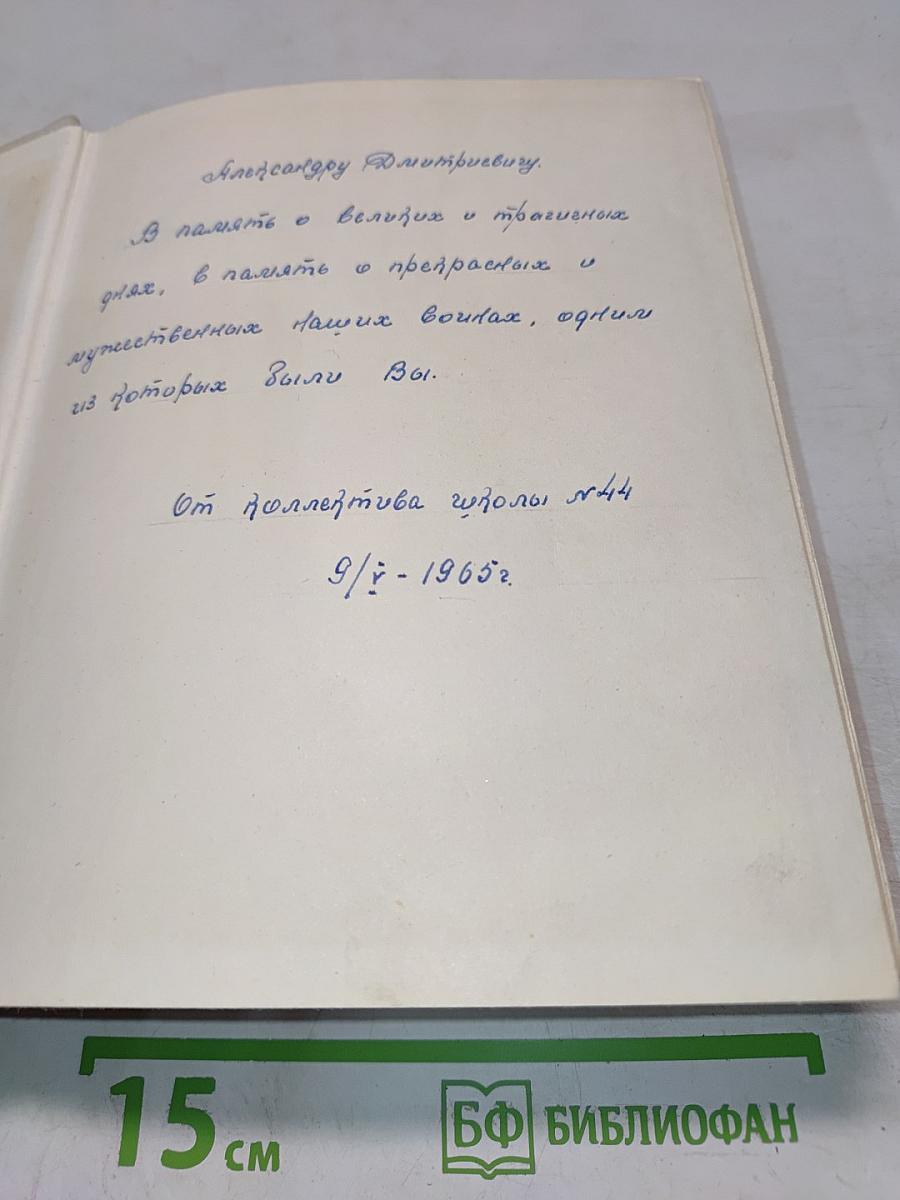 Александру Дмитриевичу.
В память о великих и трагичных
днях, в память о прекрасных и
мужественных наших воинах, одним
из которых были Вы.
От коллектива школы №44
9/V - 1965г.
15 см
БФ БИБЛИОФАН